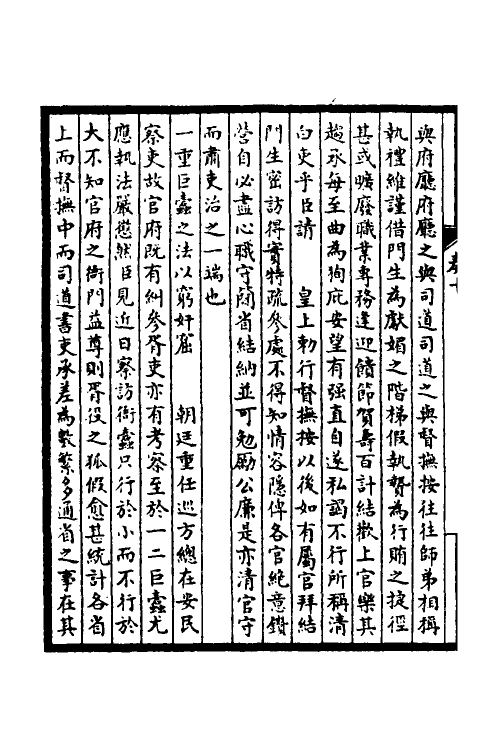 卷十
與府廳府廳之與司道司道之與督撫按往往師弟相稱
執禮維謹借門生為獻媚之階梯假執贄為行賄之捷徑
甚或曠廢職業專務逢迎饋節賀壽百計結歡上官樂其
趨承每至曲為狥庇安望有强直自遂私謁不行所稱清
白吏乎臣請　皇上勅行督撫按以後如有屬官拜結
門生密訪得實特疏參處不得知情容隱俾各官絶意鑽
營自必盡心職守閣省結納並可勉勵公廉是亦清官守
而肅吏治之一端也
一重巨蠹之法以窮奸窟　朝廷重任巡方總在安民
察吏故官府既有糾參胥吏亦有考察至於一二巨蠹尤
應執法嚴懲然臣見近日察訪衙蠹只行於小而不行於
大不知官府之衙門益尊則胥役之狐假愈甚統計各省
上而督撫中而司道書吏承差為數繁多通省之事在其